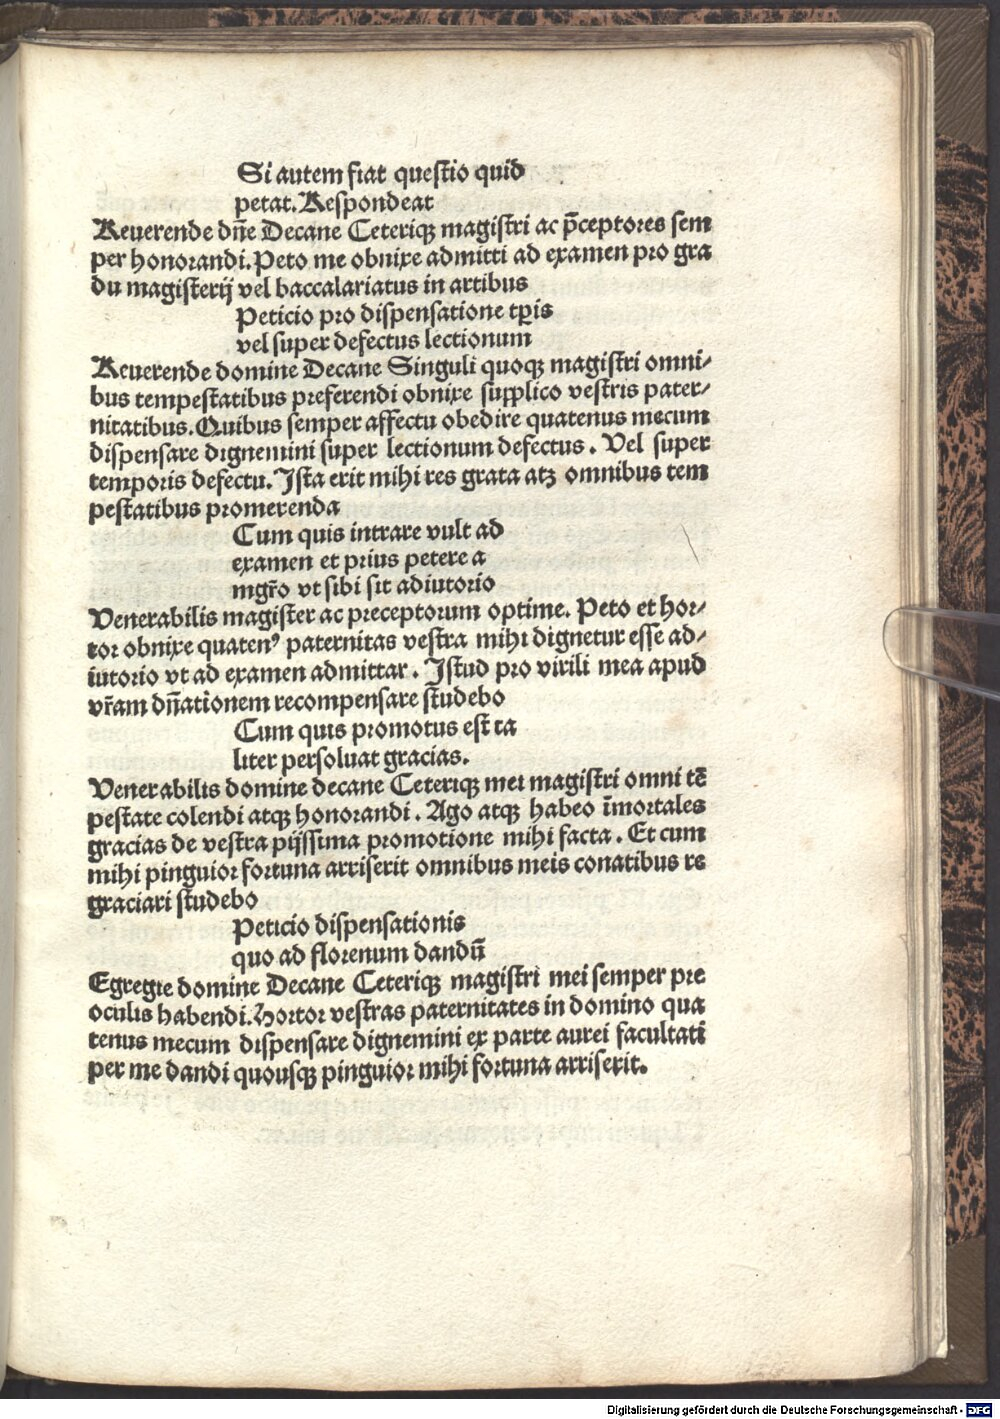 Si autem fiat questio quid
petat. Respondeat
Reuerende dn̄e Decane Ceteriqꝫ magistri ac p̄ceptores sem
per honorandi. Peto me obnixe admitti ad examen pro gra
du magisterij vel baccalariatus in artibus
Peticio pro dispensatione tꝑis
vel super defectus lectionum
Reuerende domine Decane Singuli quoqꝫ magistri omni-
bus tempestatibus preferendi obnixe supplico vestris pater-
nitatibus. Quibus semper affectu obedire quatenus mecum
dispensare dignemini super lectionum defectus. Vel super
temporis defectu. Ista erit mihi res grata atqꝫ omnibus tem
pestatibus promerenda
Cum quis intrare vult ad
examen et prius petere a
mgr̄o vt sibi sit adiutorio
Venerabilis magister ac preceptorum optime. Peto et hor-
tor obnixe quatenꝰ paternitas vestra mihi dignetur esse ad-
iutorio vt ad examen admittar. Istud pro virili mea apud
vr̄am dn̄ationem recompensare studebo
Cum quis promotus est ta
liter persoluat gracias.
Venerabilis domine decane Ceteriqꝫ mei magistri omni tē
pestate colendi atqꝫ honorandi. Ago atqꝫ habeo īmortales
gracias de vestra pijssima promotione mihi facta. Et cum
mihi pinguior fortuna arriserit omnibus meis conatibus re
graciari studebo
Peticio dispensationis
quo ad florenum dandū
Egregie domine Decane Ceteriqꝫ magistri mei semper pre
oculis habendi. Hortor vestras paternitates in domino qua
tenus mecum dispensare dignemini ex parte aurei facultati
per me dandi quousqꝫ pinguior mihi fortuna arriserit.
Digitalisierung gefördert durch die Deutsche Forschungsgemeinschaft - DFG